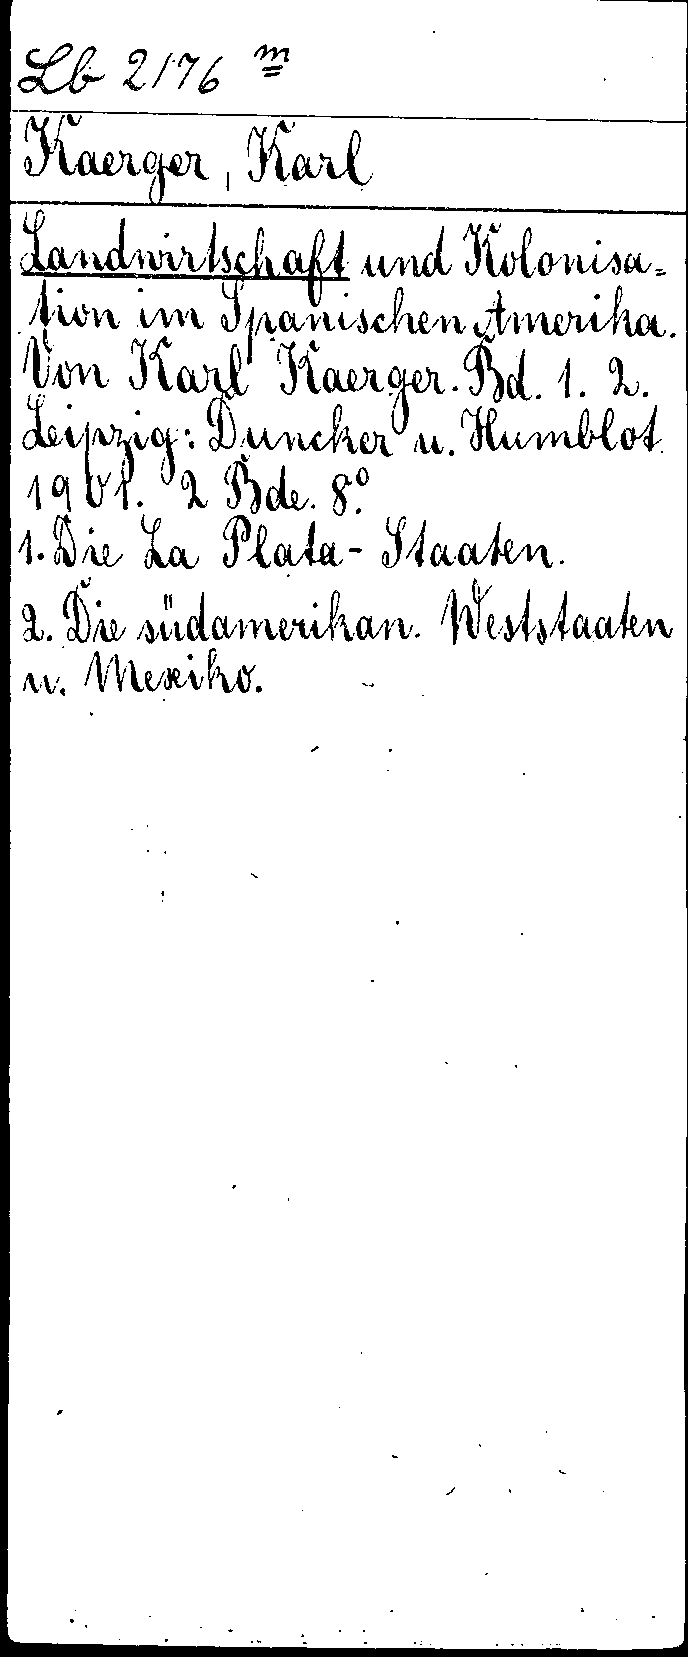 Lb 2176 m
Kaerger, Karl
Landwirtschaft und Kolonisa=
tion im Spanischen Amerika.
Von Karl Kaerger. Bd. 1. 2.
Leipzig: Duncker u. Humblot
1901. 2 Bde. 8°.
1. Die La Plata-Staaten.
2. Die südamerikan. Weststaaten
u. Mexiko.